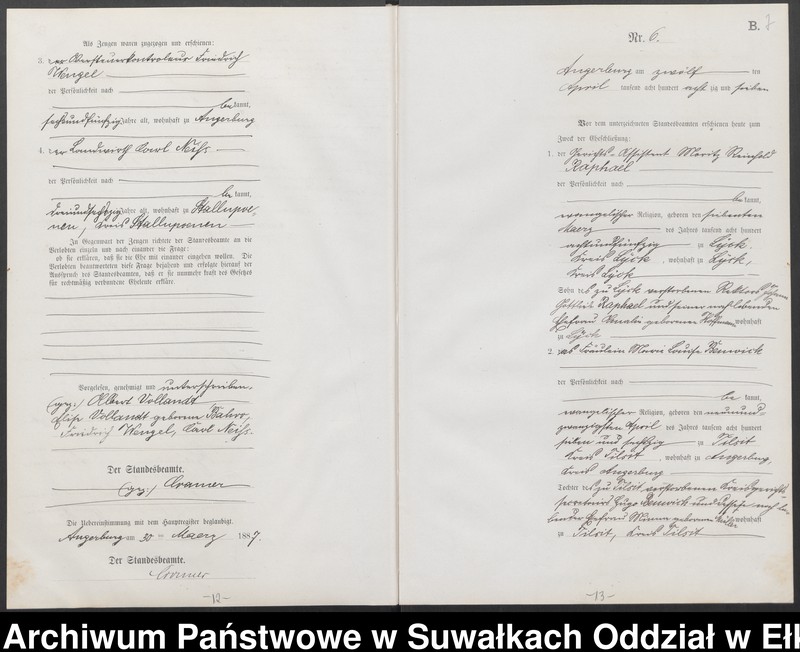 Als Zeugen waren zugezogen und erschienen:
3. der Obersteuerkontroleur Friedrich
Wenzel
der Persönlichkeit nach
bekannt,
sechsundfünfzig Jahre alt, wohnhaft zu Angerburg
4. der Landwirth Carl Neiss
der Persönlichkeit nach
bekannt,
dreiundsechzig Jahre alt, wohnhaft zu Stallupoe-
nen, Kreis Stalluponen
In Gegenwart der Zeugen richtete der Standesbeamte an die
Verlobten einzeln und nach einander die Frage:
ob sie erklären, daß sie die Ehe mit einander eingehen wollen. Die
Verlobten beantworteten diese Frage bejahend und erfolgte hierauf der
Ausspruch des Standesbeamten, daß er sie nunmehr kraft des Gesetzes
für rechtmäßig verbundene Eheleute erkläre.
Vorgelesen, genehmigt und unterschrieben.
(gez:) Albert Vollandt
Elise Vollandt geborene
Friedrich Wenzel, Carl Neiss.
Der Standesbeamte.
(gez:) Cramer
Die Uebereinstimmung mit dem Hauptregister beglaubigt.
Angerburg am 30 ten Maerz 1887.
Der Standesbeamte.
Cramer
-12-
B. 7
Nr. 6.
Angerburg am zwölf ten
April tausend acht hundert acht zig und sieben
Vor dem unterzeichneten Standesbeamten erschienen heute zum
Zweck der Eheschließung:
1. der Gerichts-Assistent Moritz Reinhold
Raphael
der Persönlichkeit nach
bekannt,
evangelischer Religion, geboren den siebenten
Maerz des Jahres tausend acht hundert
achtundfünfzig zu Lyck,
Kreis Lyck, wohnhaft zu Lyck,
Kreis Lyck
Sohn des zu Lyck verstorbenen Rektors
Gottlieb Raphael und seiner noch lebenden
Ehefrau geborenen wohnhaft
zu Lyck
2. das Fräulein Marie Louise Benwick
der Persönlichkeit nach
bekannt,
evangelischer Religion, geboren den neunund-
zwanzigsten April des Jahres tausend acht hundert
sieben und sechzig zu Tilsit
Kreis Tilsit, wohnhaft zu Angerburg,
Kreis Angerburg
Tochter des zu Tilsit verstorbenen Kreisgerichts-
secretairs Hugo Benwick und dessen noch le-
benden Ehefrau Minna geborenen wohnhaft
zu Tilsit, Kreis Tilsit
-13-
Archiwum Państwowe w Suwałkach Oddział w Ełk